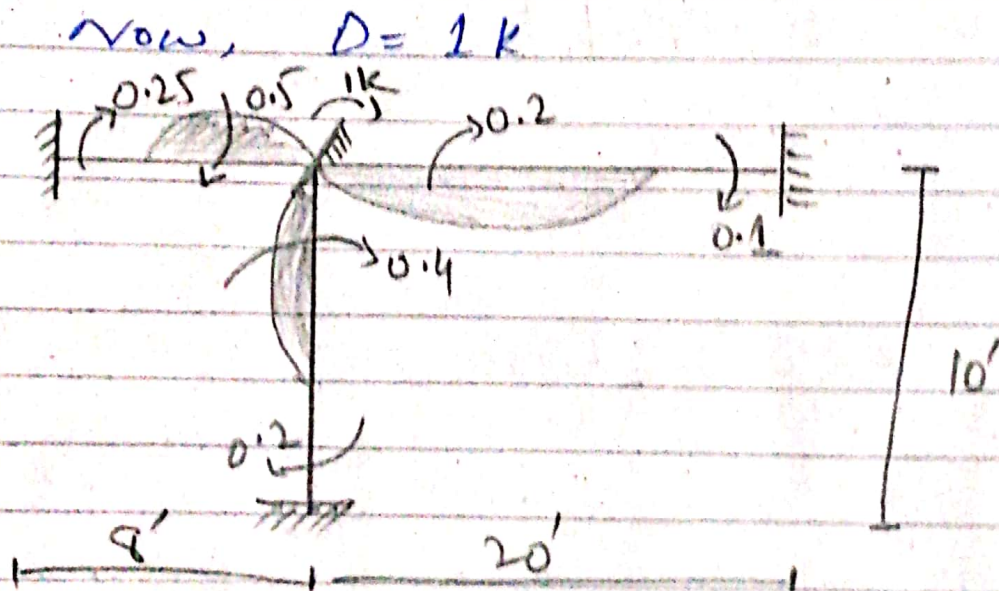 Now, D= 1 K
0.25 0.5 1k 0.2
0.1
0.4
10'
0.2
8' 20'